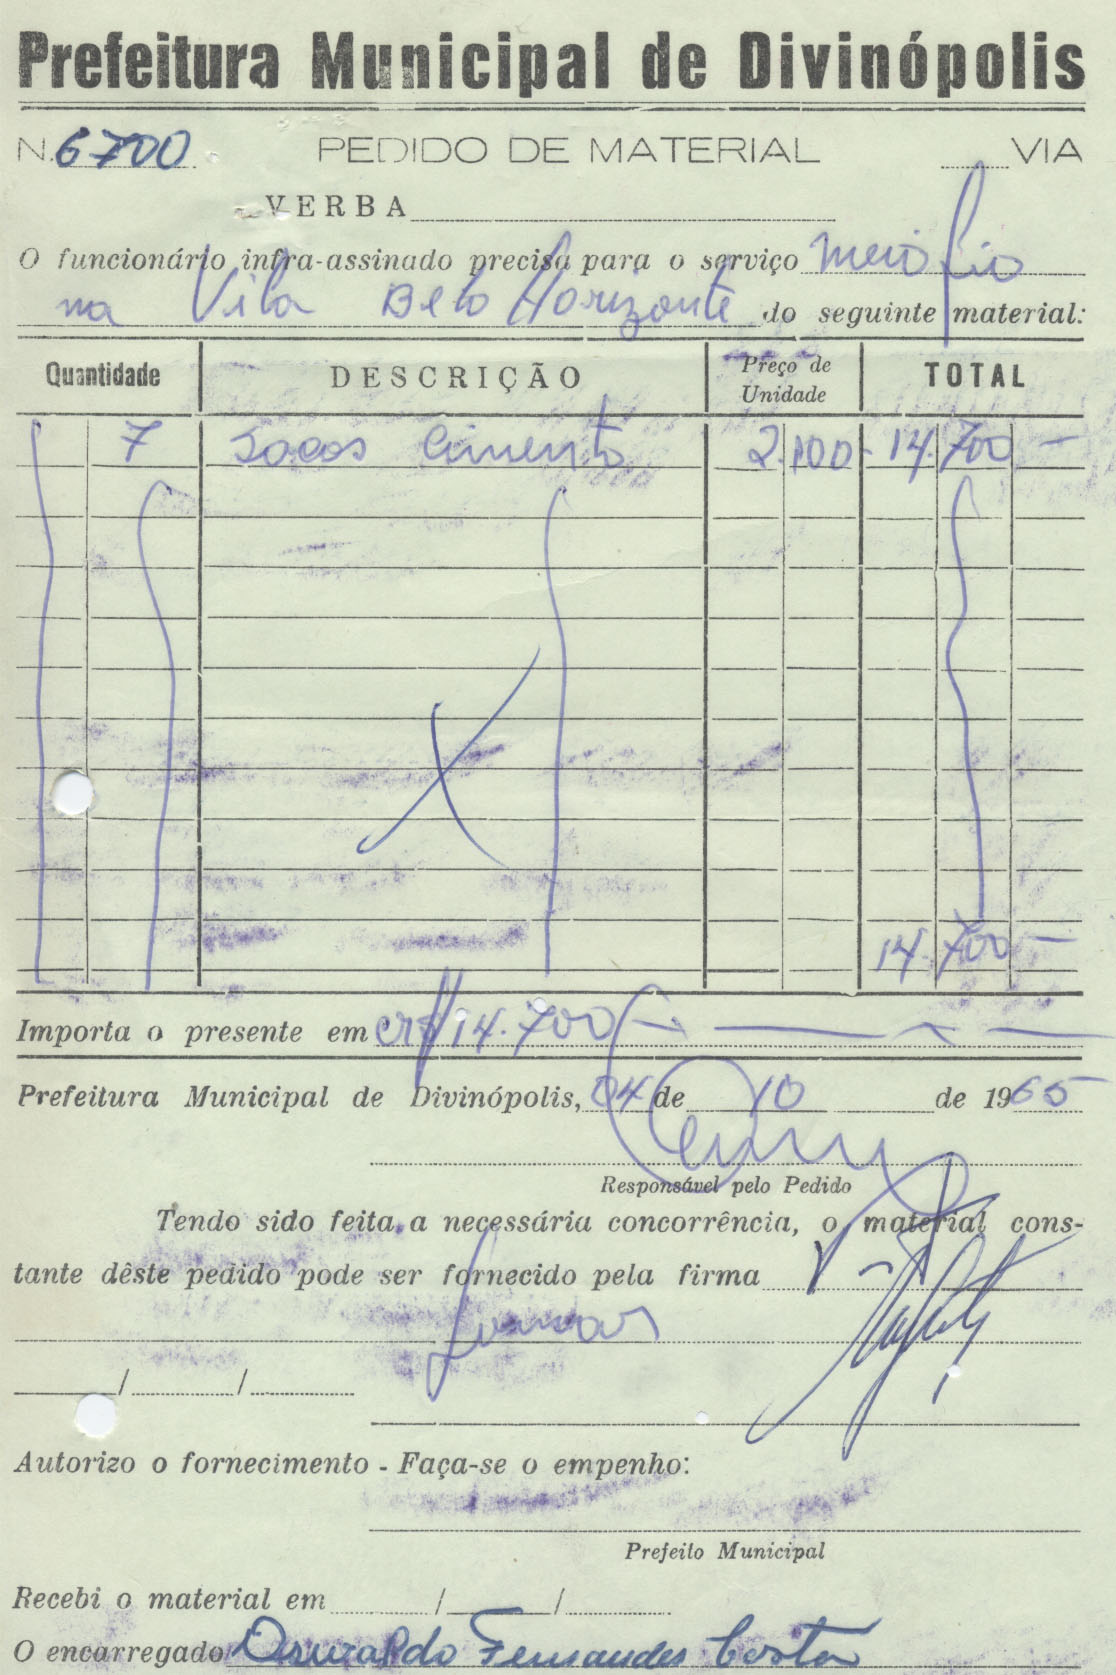 Prefeitura Municipal de Divinópolis
N. 6700 PEDIDO DE MATERIAL VIA
VERBA
O funcionário infra-assinado precisa para o serviço meio fio
na Vila Belo Horizonte do seguinte material:
Quantidade DESCRIÇÃO Preço de Unidade TOTAL
7 Sacos Cimento 2.100- 14.700 -
14.700 -
Importa o presente em CR$ 14.700 -
Prefeitura Municipal de Divinópolis, 04 de 10 de 1965
Responsável pelo Pedido
Tendo sido feita a necessária concorrência, o material cons-
tante dêste pedido pode ser fornecido pela firma
/ /
Autorizo o fornecimento - Faça-se o empenho:
Prefeito Municipal
Recebi o material em / /
O encarregado Oswaldo Fernandes Costa